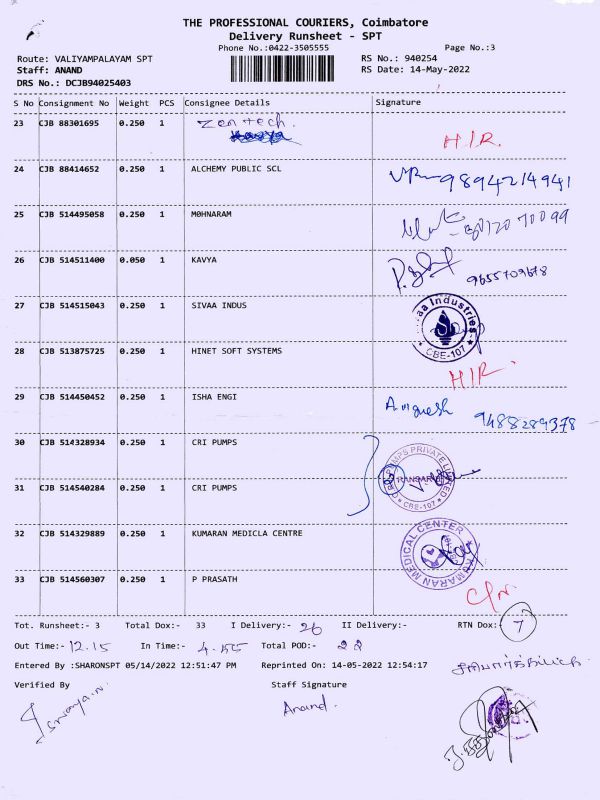 THE PROFESSIONAL COURIERS, Coimbatore
Delivery Runsheet - SPT
Phone No.:0422-3505555 Page No.:3
Route: VALIYAMPALAYAM SPT RS No.: 940254
Staff: ANAND RS Date: 14-May-2022
DRS No.: DCJB94025403
S No Consignment No Weight PCS Consignee Details Signature
23 CJB 88301695 0.250 1 Zentech. H/R.
24 CJB 88414652 0.250 1 ALCHEMY PUBLIC SCL 9894214941
25 CJB 514495058 0.250 1 M0HNARAM
26 CJB 514511400 0.050 1 KAVYA
27 CJB 514515043 0.250 1 SIVAA INDUS aa Industries CBE-107
28 CJB 513875725 0.250 1 HINET SOFT SYSTEMS H/R.
29 CJB 514450452 0.250 1 ISHA ENGI 9488289378
30 CJB 514328934 0.250 1 CRI PUMPS PUMPS PRIVATE LIMITED
31 CJB 514540284 0.250 1 CRI PUMPS CBE-107
32 CJB 514329889 0.250 1 KUMARAN MEDICLA CENTRE KUMARAN MEDICAL CENTER
33 CJB 514560307 0.250 1 P PRASATH
Tot. Runsheet:- 3 Total Dox:- 33 I Delivery:- 26 II Delivery:- RTN Dox:- 7
Out Time:- 12.15 In Time:- 4.55 Total POD:- 22
Entered By :SHARONSPT 05/14/2022 12:51:47 PM Reprinted On: 14-05-2022 12:54:17
Verified By Staff Signature
Anand.